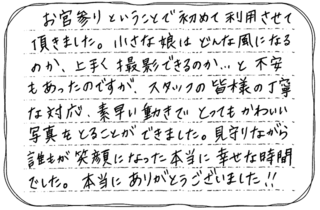 お宮参りということで初めて利用させて
頂きました。小さな娘はどんな風になる
のか、上手く撮影できるのか…と不安
もあったのですが、スタッフの皆様の丁寧
な対応、素早い動きでとってもかわいい
写真をとることができました。見守りながら
誰もが笑顔になった本当に幸せな時間
でした。本当にありがとうございました!!